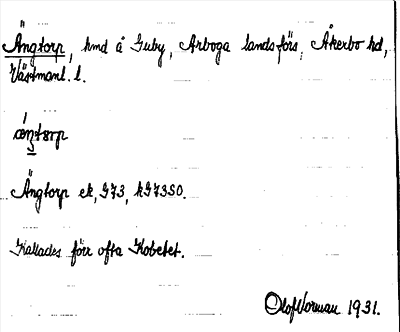 Ängtorp, hmd å Guby, Arboga landsförs, Åkerbo hd,
Västmanl. l.
Ängtorp ek, G73, hG73SO.
Kallades förr ofta Kobetet.
Olof Norman 1931.